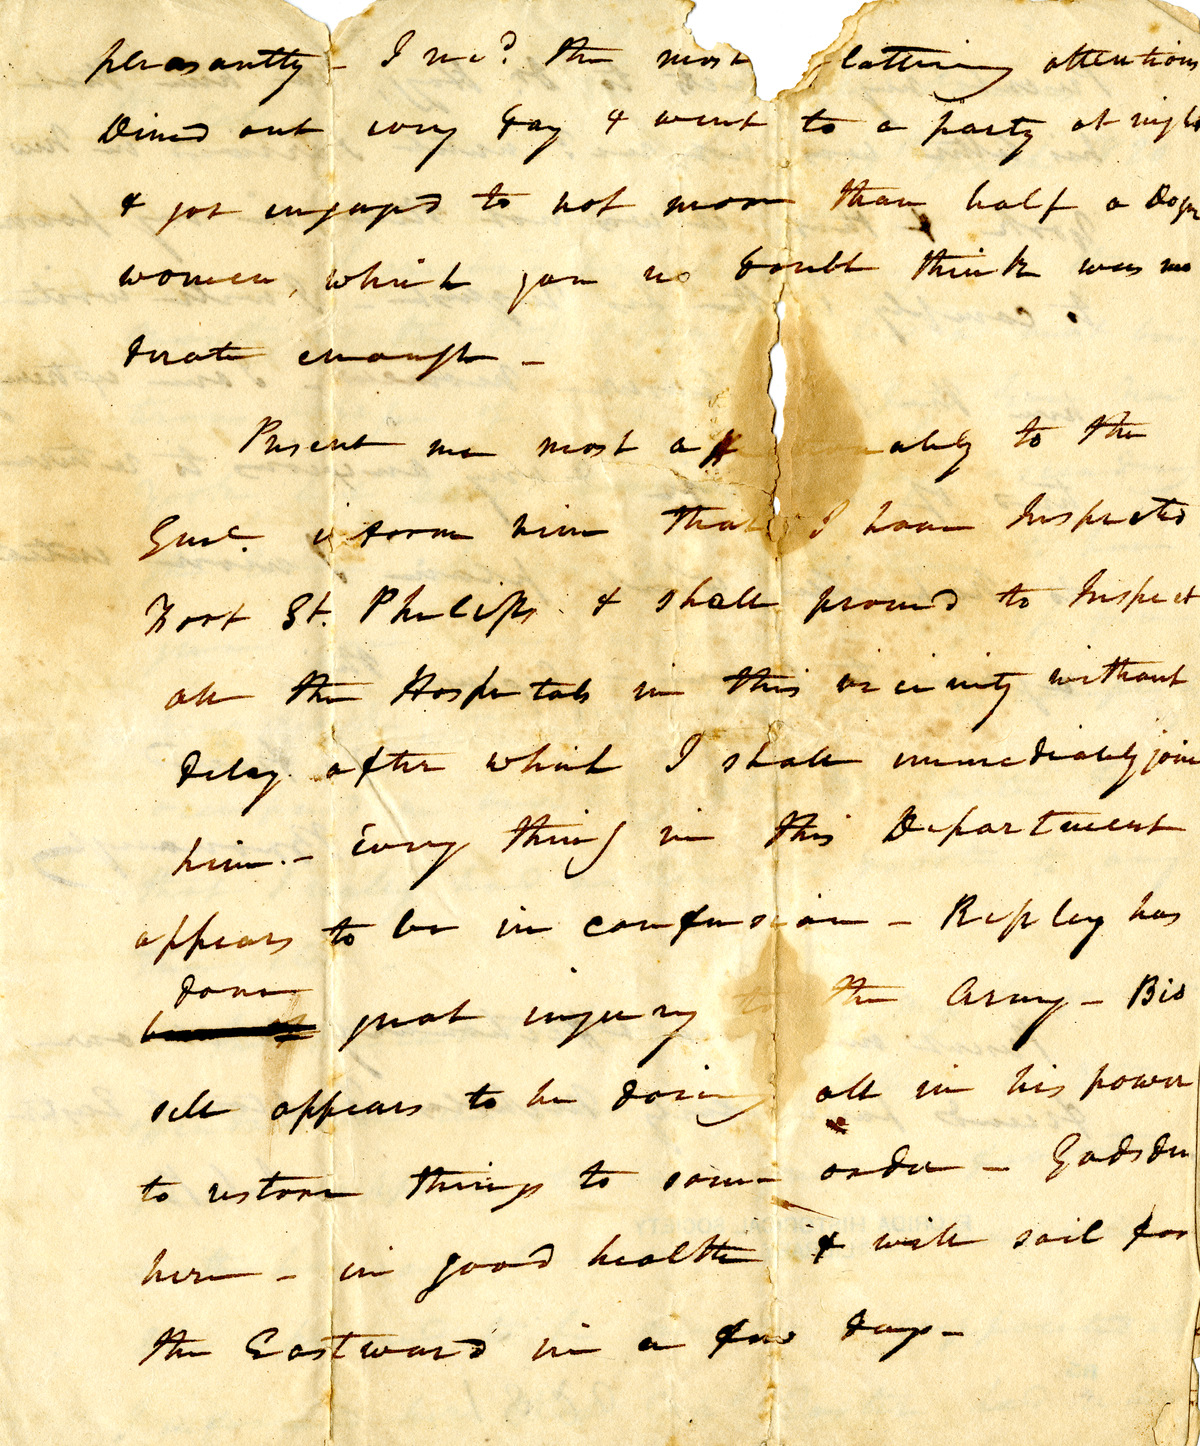 pleasantly - I recd. the most flattering attentions
Dined out every day & went to a party at night
& got engaged to not more than half a Dozn
women, which you no doubt think was mo
derate enough -
Present me most aff ately to the
Genl. inform him that I have Inspected
Fort St. Philips & shall proceed to Inspect
all the Hospitals in this vicinity without
delay after which I shall immediately join
him. - Every thing in this Department
appears to be in confusion - Ripley has
done
great injury to the Army - Bis
sell appears to be doing all in his power
to restore things to some order - Gadsden
here - in good health & will sail for
the Eastward in a few days -